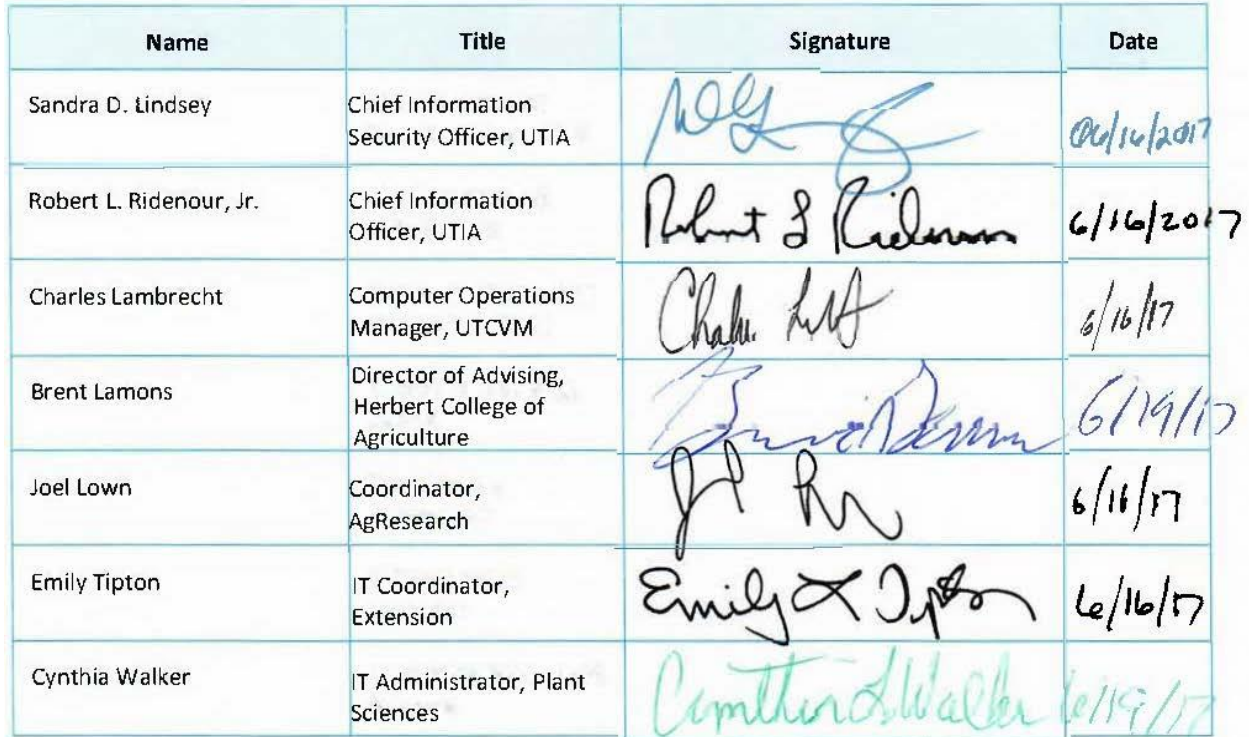 Name Title Signature Date
Sandra D. Lindsey Chief Information
Security Officer, UTIA
06/16/2017
Robert L. Ridenour, Jr. Chief Information
Officer, UTIA
Robert L Ridenour 6/16/2017
Charles Lambrecht Computer Operations
Manager, UTCVM
6/16/17
Brent Lamons Director of Advising,
Herbert College of
Agriculture
6/19/17
Joel Lown Coordinator,
AgResearch
6/16/17
Emily Tipton IT Coordinator,
Extension
Emily L Tipton 6/16/17
Cynthia Walker IT Administrator, Plant
Sciences
Cynthia L Walker 6/19/17